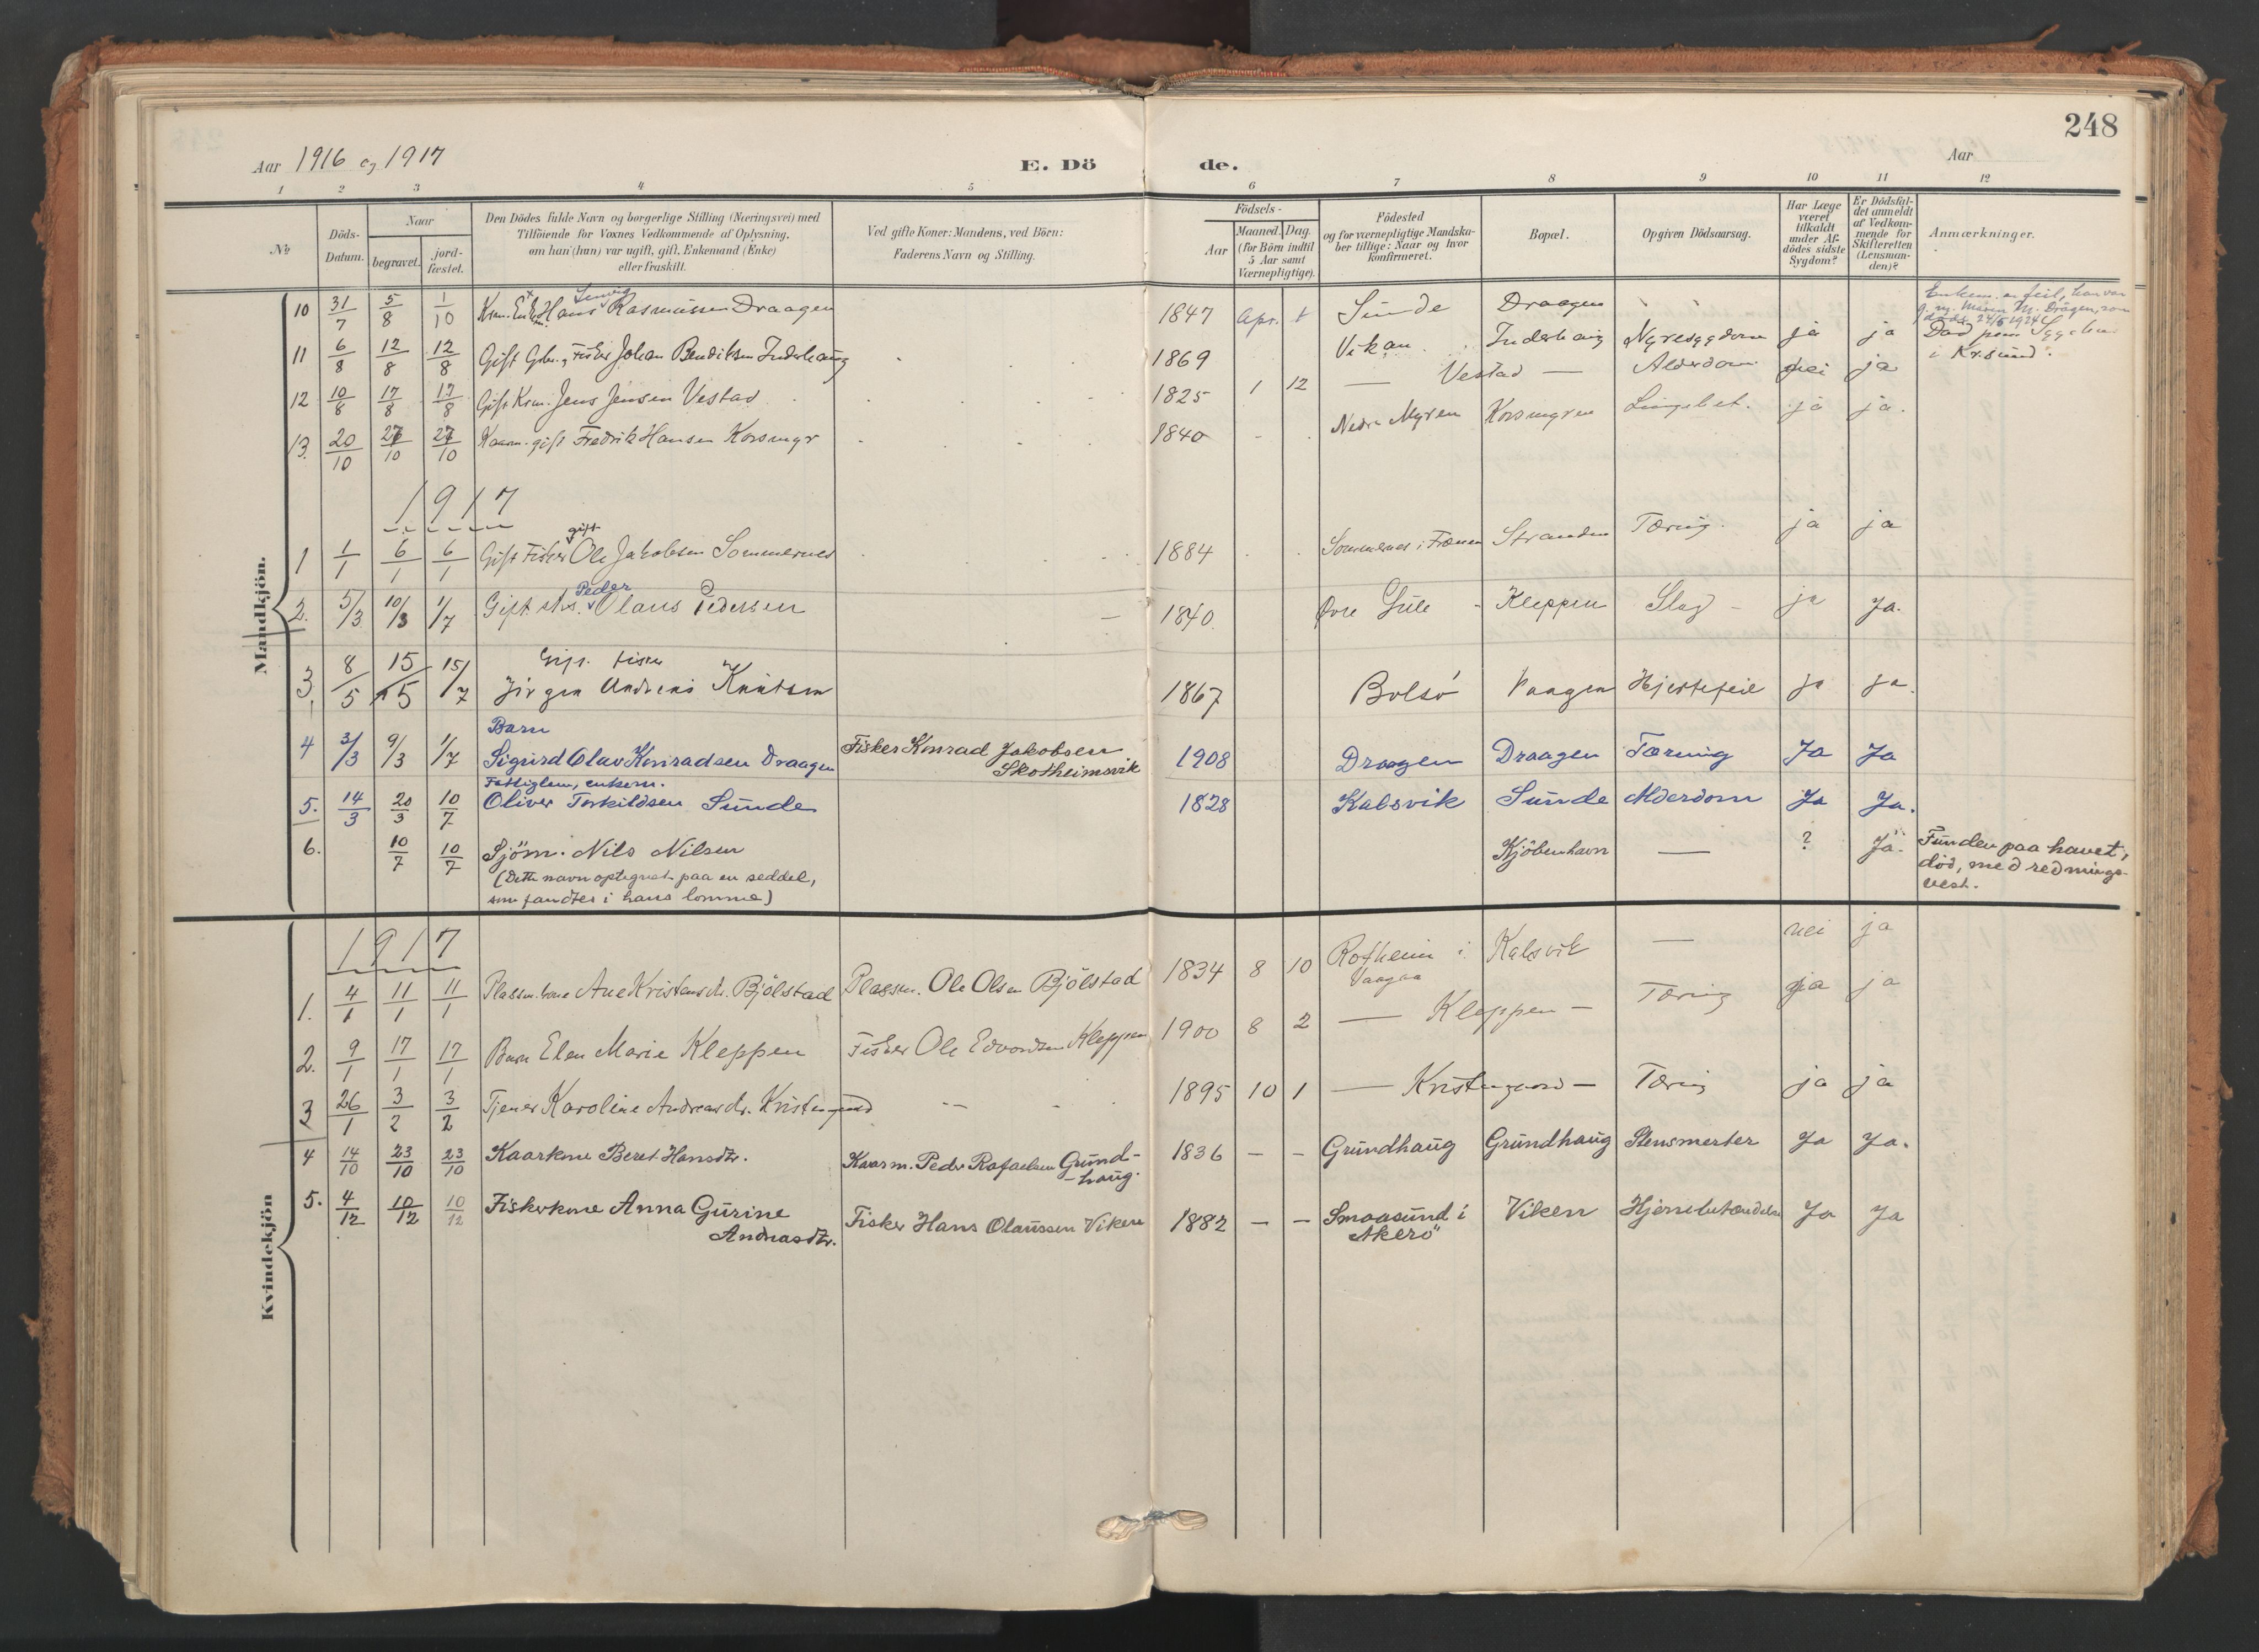 248
Aar 1916 og 1917
E. Dö de.
Aar
1 2 3 4 5 6 7 8 9 10 11 12
No
Döds-Datum.
Naar
begravet.
jord-fæstet.
Den Dödes fulde Navn og borgerlige Stilling (Næringsvei) med
Tilföiende for Voxnes Vedkommende af Oplysning,
om han (hun) var ugift, gift, Enkemand (Enke)
eller fraskilt.
Ved gifte Koner: Mandens, ved Börn:
Faderens Navn og Stilling.
Födsels-
Aar
Maaned. Dag.
(for Börn indtil
5 Aar samt
Værnepligtige).
Födested
og for værnepligtige Mandska-
ber tillige: Naar og hvor
konfirmeret.
Bopæl.
Opgiven Dödsaarsag.
Har Læge
været
tilkaldt
under Af-
dödes sidste
Sygdom?
Er Dödsfal-
det anmeldt
af Vedkom-
mende for
Skifteretten
(Lensman-
den)?
Anmærkninger.
Mandkjön.
10 31/7 5/8 1/10 Hans Rasmussen Draagen 1847 Apr. 1 Sunde Draagen
Enkem. er feil, han var
24/5 1924
11 6/8 12/8 12/8 Gift Gbr., Fisker Johan Bendiksen Inderhaug 1869 Vikan Inderhaug Nyresygdom ja ja Död paa Sygehus
i Kr.sund.
12 10/8 17/8 17/8 Gift Krm. Jens Jensen Vestad 1825 1 12 — Vestad — Alderdom nei ja
13. 20/10 27/10 27/10 Kaarm. gift Fredrik Hansen Korsmyr 1840 Nedre Myren Korsmyren ja ja.
1917
gift
1 1/1 6/1 6/1 Gift Fisker Ole Jakobsen Sommernes 1884 Sommernes i Frænen Stranden Tæring. ja ja
Peder
2. 5/3 10/3 1/7 Gift Olaus Pedersen 1840. Øvre Kleppen Slag – ja Ja.
Gift. fisker
3. 8/5 15/5 15/7 Jörgen Andreas Knutsen 1867 Bolsö Vaagen Hjertefeil ja ja.
Barn
4 3/3 9/3 1/7 Sigurd Olav Konradsen Draagen Fisker Konrad Jakobsen
Skotheimsvik 1908 Draagen Draagen Tæring Ja Ja
Fattiglem, enkem.
5. 14/3 20/3 10/7 Oliver Torkildsen Sunde 1828 Kalsvik Sunde Alderdom Ja Ja.
6. 10/7 10/7 Sjöm. Nils Nilsen Kjöbenhavn — ? Ja. Funden paa havet,
död, med rednings-
vest.
(Dette navn optegnet paa en seddel,
som fandtes i hans lomme)
Kvindekjön
1917
1. 4/1 11/1 11/1 Plassm.kone Ane Kristensdt. Bjölstad Plassm. Ole Olsen Bjölstad 1834 8 10 Rotheim i
Vaagaa Kalsvik — nei ja
2. 9/1 17/1 17/1 Barn Elen Marie Kleppen Fisker Ole Edvardsen Kleppen 1900 8 2 — Kleppen – Tæring ja ja
3 26/1 3/2 3/2 Tjener Karoline Andreasdr. Kristengaard – 1895 10 1 — Kristengaard – Tæring ja ja
4 14/10 23/10 23/10 Kaarkone Beret Hansdtr. Kaarm. Peder Rafaelsen Grund-
-haug. 1836 – – Grundhaug Grundhaug Stensmerter Ja Ja.
5. 4/12 10/12 10/12 Fiskerkone Anna Gurine
Andreasdtr. Fisker Hans Olaussen Viken 1882 – – Smaasund i
Akerö Viken Hjernebetændelse Ja Ja